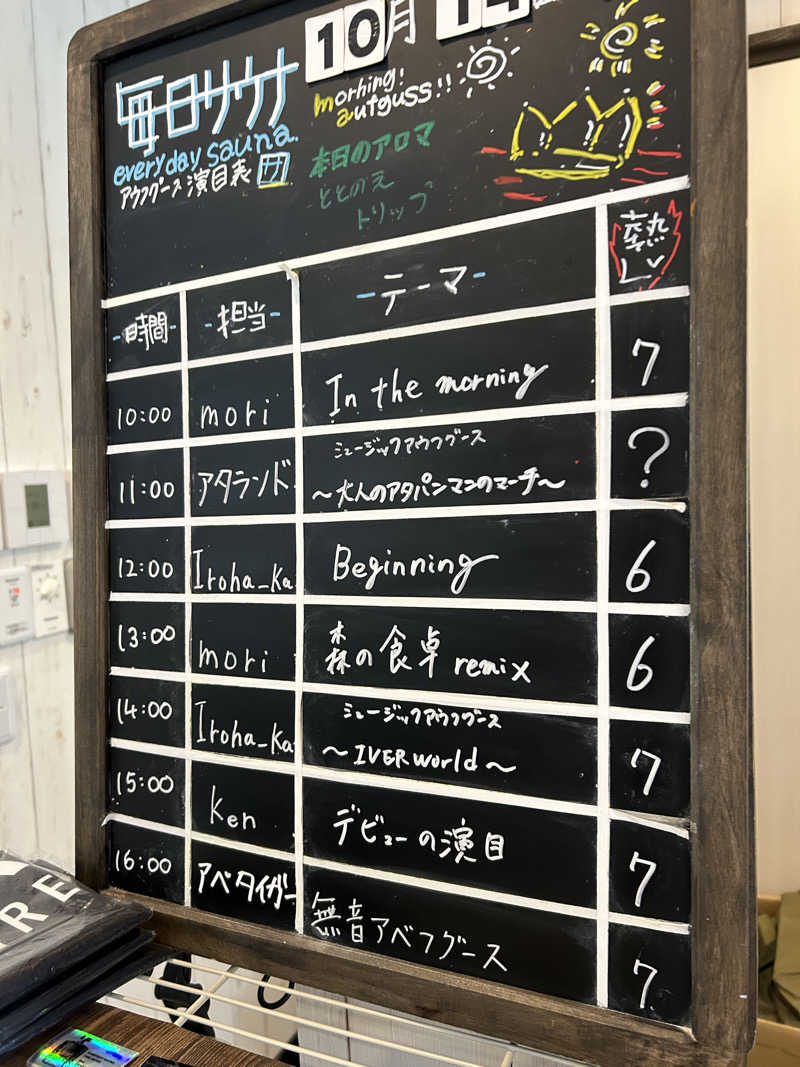 10月 14
毎日サウナ
everyday sauna.
アウフグース演目表
morning!
autguss!!
本日のアロマ
ととのえ
トリップ
時間 担当 -テーマ- 熱レベ
10:00 mori In the morning 7
11:00 アタランド ミュージックアウフグース
～大人のアタパンマンのマーチ～ ?
12:00 Iroha_Ka Beginning 6
13:00 mori 森の食卓 remix 6
14:00 Iroha_Ka ミュージックアウフグース
～IVERworld～ 7
15:00 ken デビューの演目 7
16:00 アベタイガー 無音アベフグース 7
RE